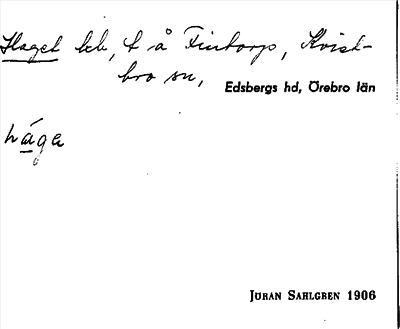 Haget lbb, t å Fintorp, Kvist-
bro sn, Edsbergs hd, Örebro län
hága
JÖRAN SAHLGREN 1906